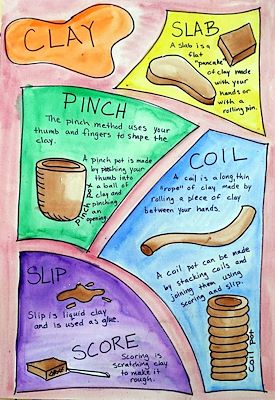 CLAY
SLAB
A slab is a
flat
"pancake"
of clay made
with your
hands or
with a
rolling pin.
PINCH
The pinch method uses your
thumb and fingers to shape the
clay.
A pinch pot is made
by pushing your
thumb into
a ball
of clay
and
pinching
an
opening.
pinch pot
COIL
A coil is a long thin
"rope" of clay made by
rolling a piece of clay
between your hands.
A coil pot can be made
by stacking coils and
joining them using
scoring and slip.
coil pot
SLIP
Slip is liquid clay
and is used as glue.
SCORE
Scoring is
scratching clay
to make it
rough.